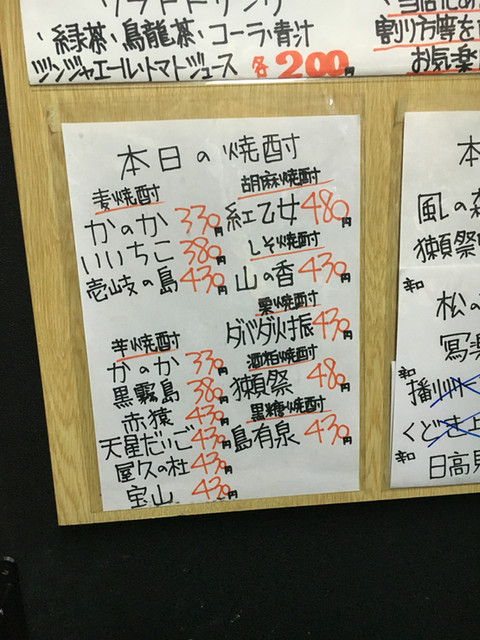 ソフトドリンク
・緑茶・烏龍茶・コーラ・青汁
ジンジャエール・トマトジュース 各200円
割り方等を
お気楽
本日の焼酎
麦焼酎
かのか 330円
いいちこ 380円
壱岐の島 430円
芋焼酎
かのか 330円
黒霧島 380円
赤猿 430円
天星だいご 430円
屋久の杜 430円
宝山 430円
胡麻焼酎
紅乙女 480円
しそ焼酎
山の香 430円
栗焼酎
ダバダ火振 430円
酒粕焼酎
獺祭 480円
黒糖焼酎
島有泉 430円
本
風の森
獺祭
辛口
松の
冩楽
辛口
播州
くどき上
辛口
日高見